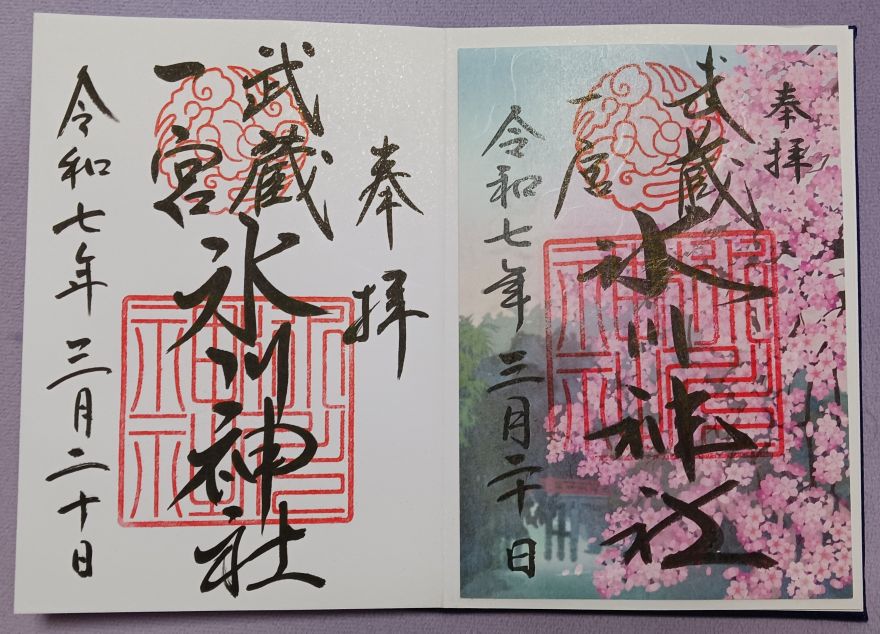 奉拝
武蔵
一宮
氷川神社
令和七年三月二十日
氷川神社
奉拝
武蔵
一宮
氷川神社
令和七年三月二十日
氷川神社